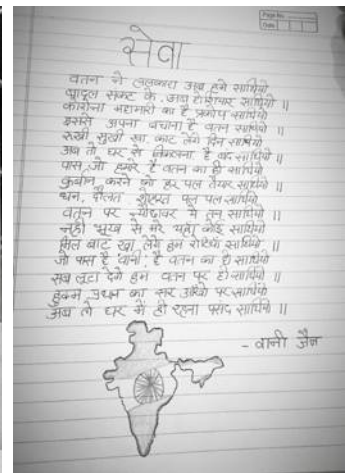 Page No.
Date
सेवा
वतन ने ललकारा अब हमें साथियो
बादल संकट के, अब होशियार साथियो ॥
कोरोना महामारी का है प्रकोप साथियो
इससे अपना बचाना है वतन साथियो ॥
रूखी सूखी खा, काट लेंगे दिन साथियो
अब तो घर से निकलना है बंद साथियो ॥
पास जो हमारे है वतन का ही साथियो
कुर्बान करने को हर पल तैयार साथियो ॥
धन, दौलत, शोहरत पल पल साथियो
वतन पर न्योछावर ये तन साथियो ॥
नहीं भूख से मरे यहाँ कोई साथियो
मिल बाट खा लेंगे हम रोटियाँ साथियो ॥
जो पास है 'वानी' है वतन का ही साथियो
सब लुटा देंगे हम वतन पर ही साथियो ॥
हुक्म प्रधान का सर आँखो पर साथियो
अब तो घर में ही रहना पसंद साथियो ॥
- वानी जैन